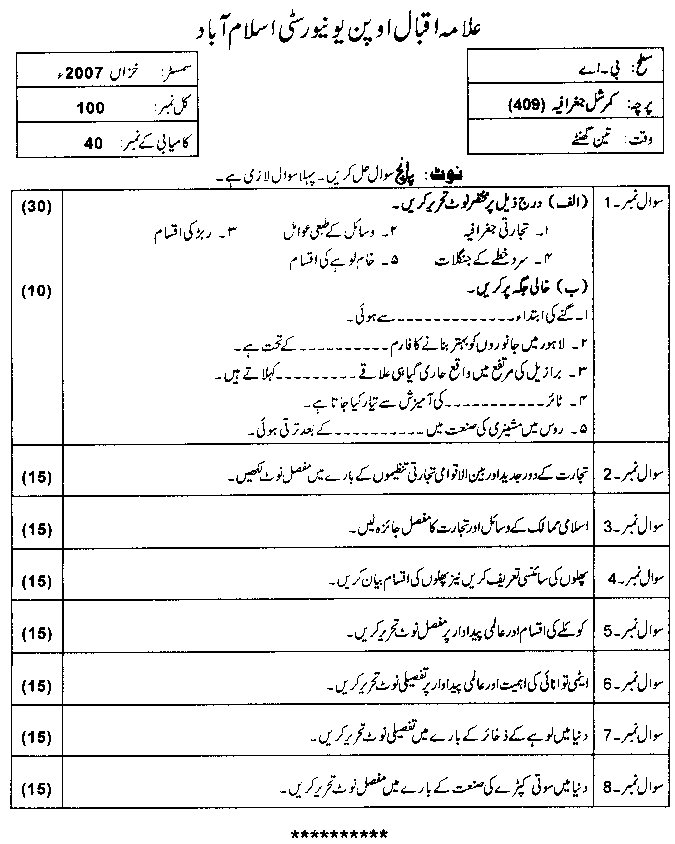 علامہ اقبال اوپن یونیورسٹی اسلام آباد
سطح: بی۔اے
پرچہ: کمرشل جغرافیہ (409)
وقت: تین گھنٹے
سمسٹر: خزاں 2007ء
کل نمبر: 100
کامیابی کے نمبر: 40
نوٹ: پانچ سوال حل کریں۔ پہلا سوال لازی ہے۔
سوال نمبر۔1 (الف) درج ذیل پر مختصر نوٹ تحریر کریں۔ (30)
۱۔ تجارتی جغرافیہ ۲۔ وسائل کے طبعی عوامل ۳۔ ربڑ کی اقسام
۴۔ سرد خطے کے جنگلات ۵۔ خام لوہے کی اقسام
(ب) خالی جگہ پر کریں۔ (10)
۱۔ گنے کی ابتداء ۔۔۔۔۔۔۔۔۔۔۔۔۔ سے ہوئی۔
۲۔ لاہور میں جانوروں کو بہتر بنانے کا فارم ۔۔۔۔۔۔۔۔۔۔ کے تحت ہے۔
۳۔ برازیل کی مرتفع میں واقع حاری گیاہی علاقے ۔۔۔۔۔۔۔۔۔ کہلاتے ہیں۔
۴۔ ٹائر ۔۔۔۔۔۔۔۔۔۔۔ کی آمیزش سے تیار کیا جاتا ہے۔
۵۔ روس میں مشینری کی صنعت میں ۔۔۔۔۔۔۔۔۔۔ کے بعد ترقی ہوئی۔
سوال نمبر۔2 تجارت کے دور جدید اور بین الاقوامی تجارتی تنظیموں کے بارے میں مفصل نوٹ لکھیں۔ (15)
سوال نمبر۔3 اسلامی ممالک کے وسائل اور تجارت کا مفصل جائزہ لیں۔ (15)
سوال نمبر۔4 پھلوں کی سائنسی تعریف کریں نیز پھلوں کی اقسام بیان کریں۔ (15)
سوال نمبر۔5 کوئلے کی اقسام اور عالمی پیداوار پر مفصل نوٹ تحریر کریں۔ (15)
سوال نمبر۔6 ایٹمی توانائی کی اہمیت اور عالمی پیداوار پر تفصیلی نوٹ تحریر کریں۔ (15)
سوال نمبر۔7 دنیا میں لوہے کے ذخائر کے بارے میں تفصیلی نوٹ تحریر کریں۔ (15)
سوال نمبر۔8 دنیا میں سوتی کپڑے کی صنعت کے بارے میں مفصل نوٹ تحریر کریں۔ (15)
**********